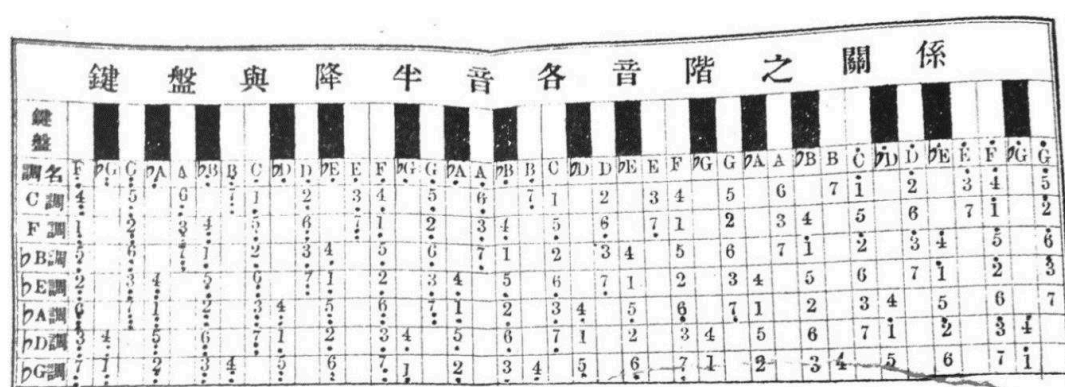 鍵盤與降半音各音階之關係
鍵盤
調名 F ♭G G ♭A A ♭B B C ♭D D ♭E E F ♭G G ♭A A ♭B B C ♭D D ♭E E F ♭G G ♭A A ♭B B C ♭D D ♭E E F ♭G G
C調 4 5 6 7 1 2 3 4 5 6 7 1 2 3 4 5 6 7 1 2 3 4 5
F調 1 2 3 4 5 6 7 1 2 3 4 5 6 7 1 2 3 4 5 6 7 1 2
♭B調 5 6 7 1 2 3 4 5 6 7 1 2 3 4 5 6 7 1 2 3 4 5 6
♭E調 2 3 4 5 6 7 1 2 3 4 5 6 7 1 2 3 4 5 6 7 1 2 3
♭A調 6 7 1 2 3 4 5 6 7 1 2 3 4 5 6 7 1 2 3 4 5 6 7
♭D調 3 4 5 6 7 1 2 3 4 5 6 7 1 2 3 4 5 6 7 1 2 3 4
♭G調 7 1 2 3 4 5 6 7 1 2 3 4 5 6 7 1 2 3 4 5 6 7 1